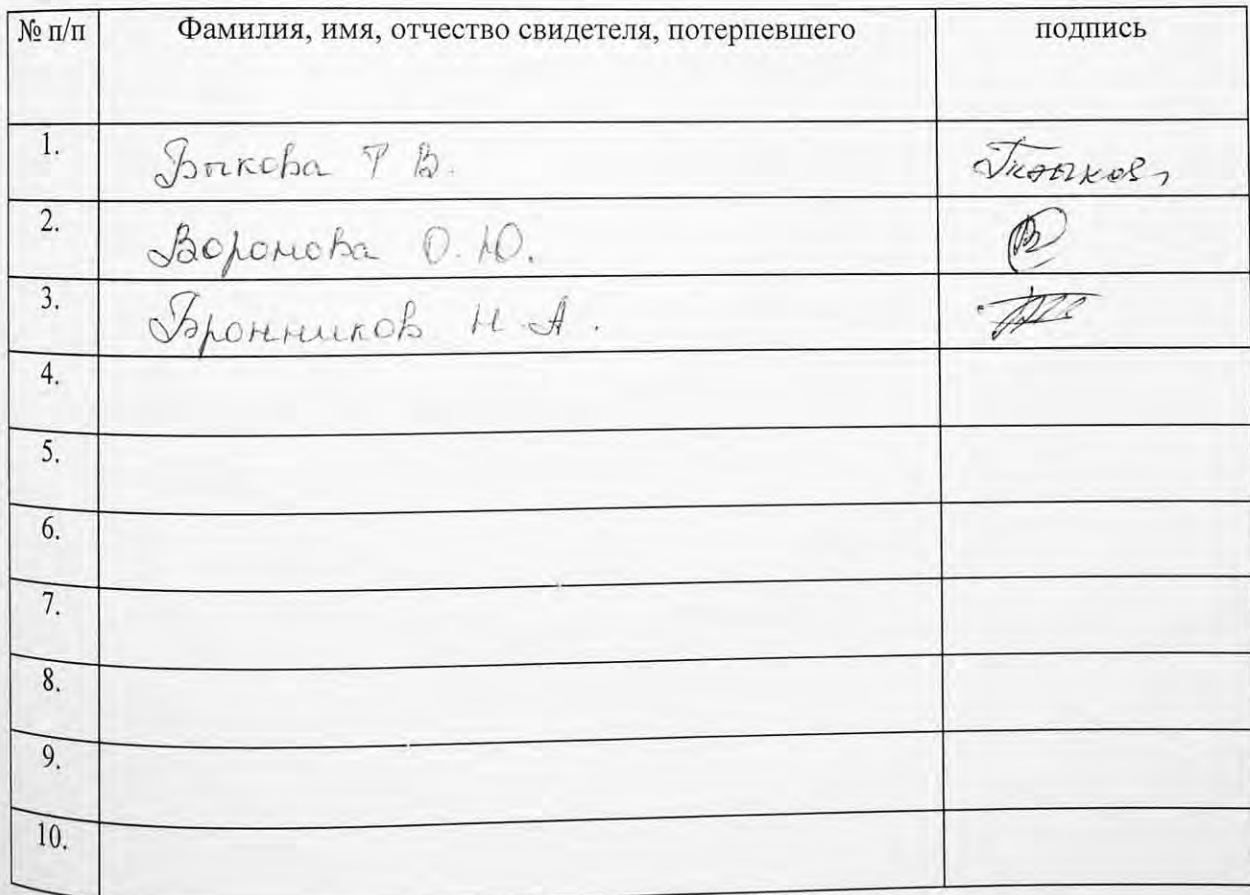 № п/п Фамилия, имя, отчество свидетеля, потерпевшего подпись
1. Быкова Т В.
2. Воронова О. Ю.
3. Бронников Н. А.
4.
5.
6.
7.
8.
9.
10.